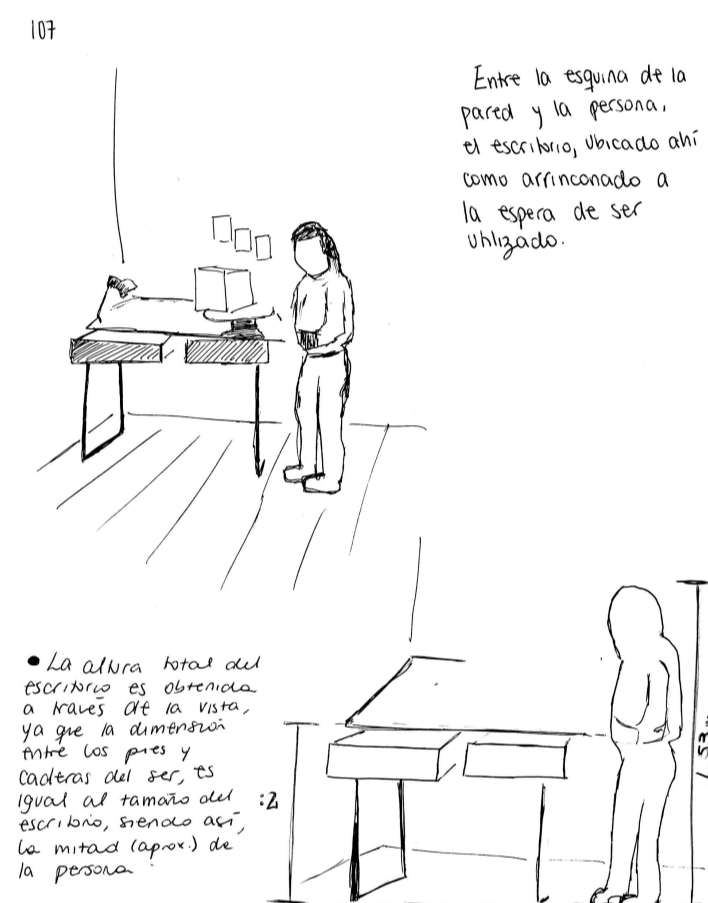 107
Entre la esquina de la
pared y la persona,
el escritorio, ubicado ahí
como arrinconado a
la espera de ser
utilizado.
• La altura total del
escritorio es obtenida
a través de la vista,
ya que la dimensión
entre los pies y
caderas del ser, es
igual al tamaño del
escritorio, siendo así,
la mitad (aprox.) de
la persona.
:2